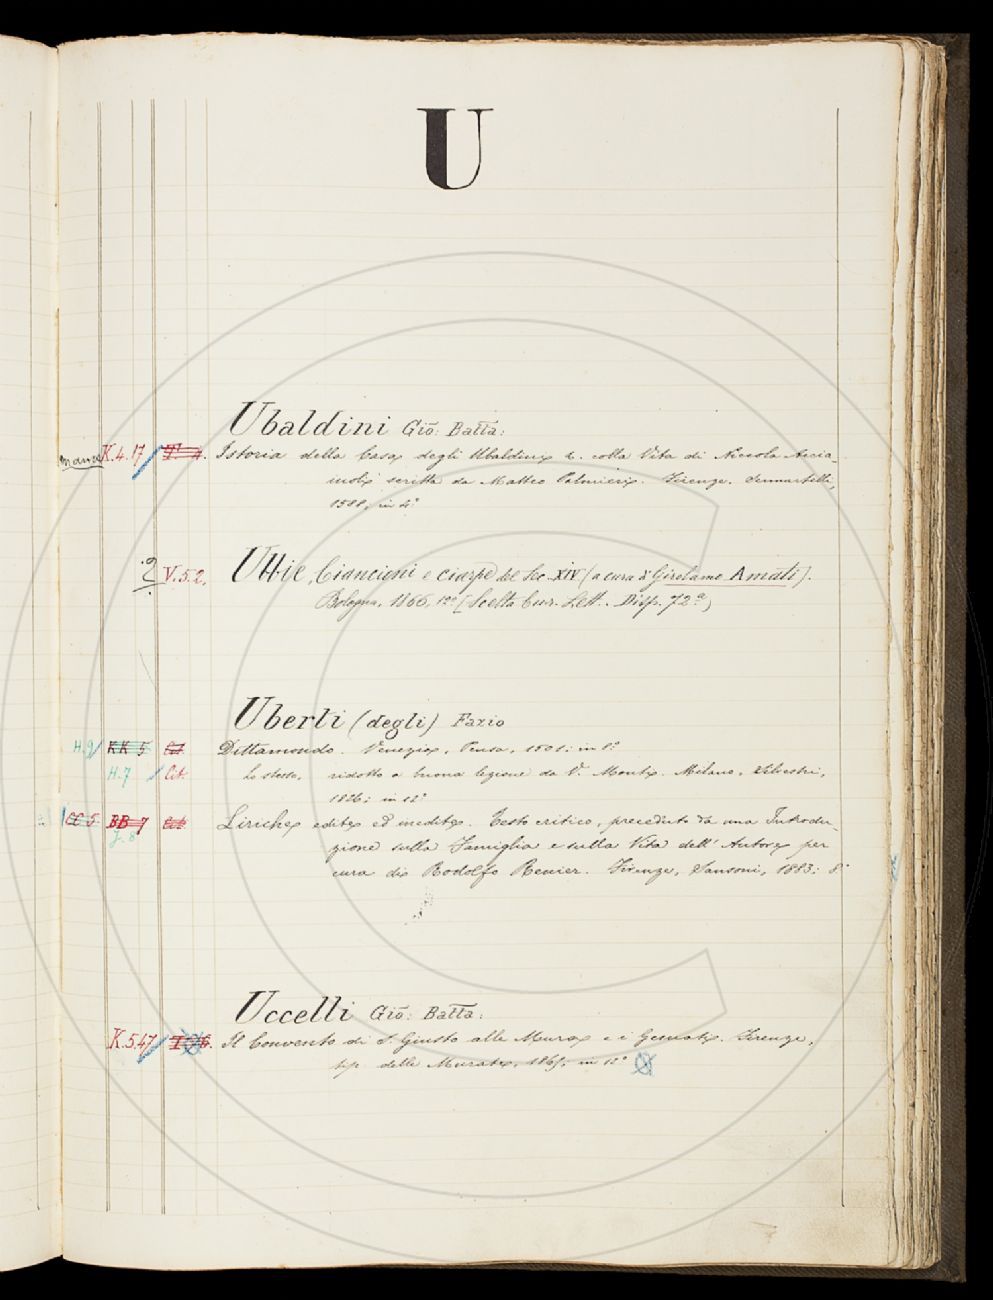 U
Ubaldini Gio: Batta:
manca K.4.17 T. 4. Istoria della Casa degli Ubaldini &. colla Vita di Niccola Accia-
iuoli scritta da Matteo Palmieri. Firenze. Sermartelli,
1588, in 4°
? V.5.2. Ubbie, Ciancioni e ciarpe del Sec. XIV (a cura di Girolamo Amati).
Bologna, 1866, 12° (Scelta Cur. Lett. Disp. 72ª)
Uberti (degli) Fazio
H.9 KK 5 Dittamondo. Venezia, 1501; in 8°
H.7 Cit Lo stesso, ridotto a buona lezione da V. Monti. Milano, Silvestri,
1826; in 12°
CC 5 BB 7 Liriche edite ed inedite. Testo critico, preceduto da una Introdu-
J.8 zione sulla Famiglia e sulla Vita dell' Autore per
cura di Rodolfo Renier. Firenze, Sansoni, 1883; 8°
Uccelli Gio: Batta:
K.5.47 Il Convento di S. Giusto alle Mura e i Gesuati. Firenze,
tip. delle Murate, in 12°